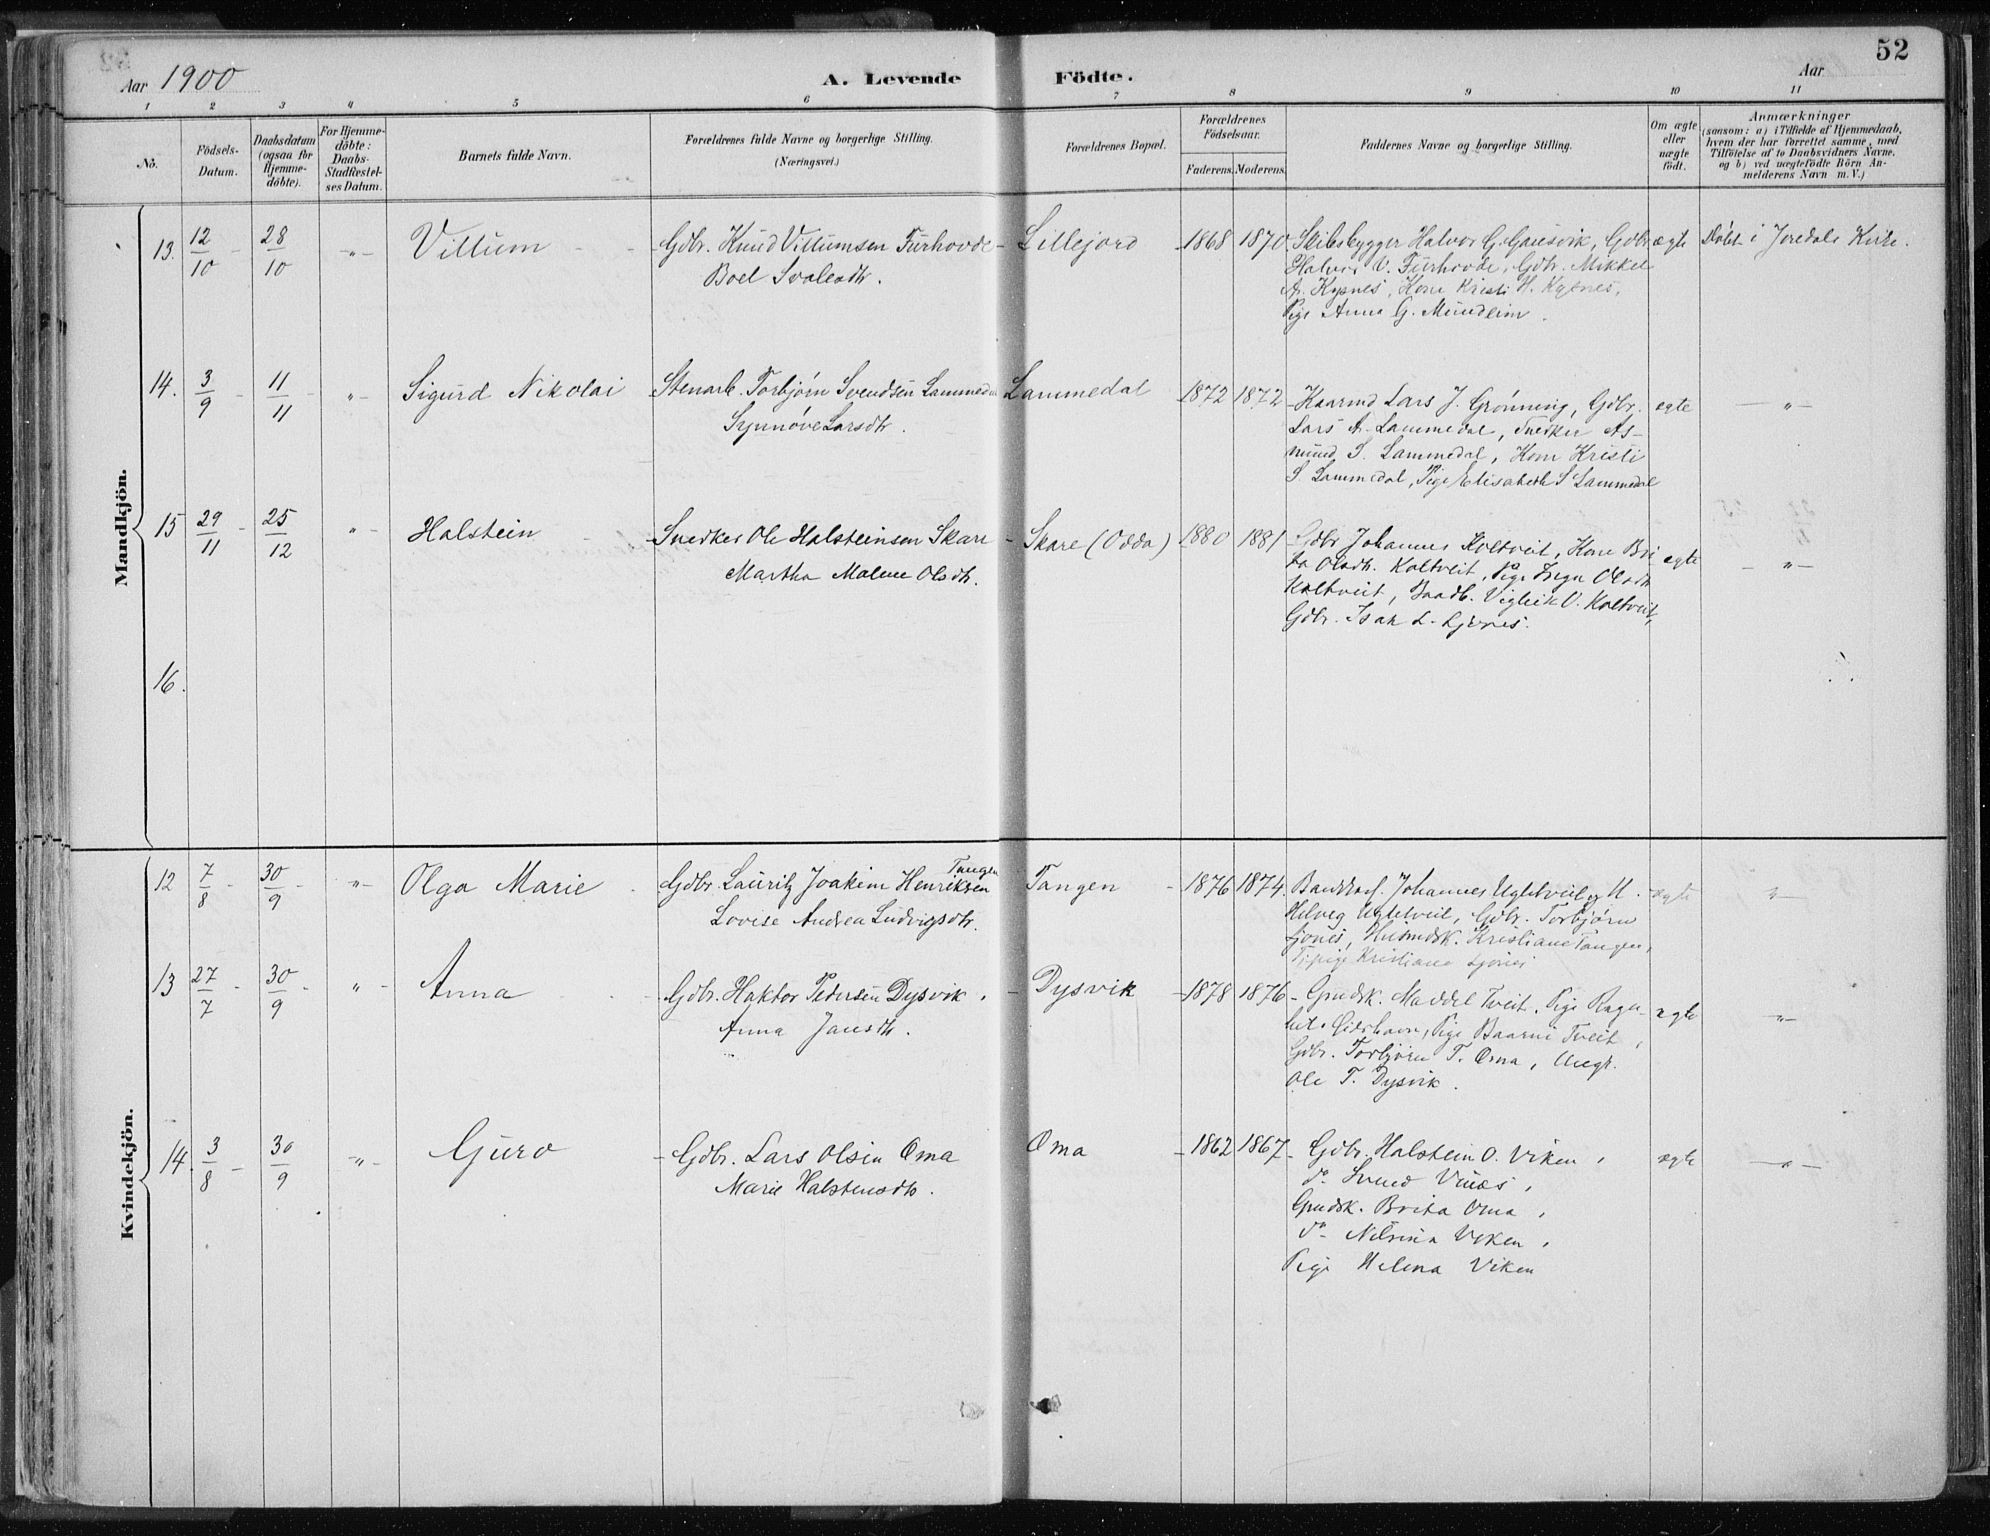 52
Aar 1900
A. Levende Födte.
Aar
1 2 3 4 5 6 7 8 9 10 11
No.
Födsels-
Datum.
Daabsdatum
(ogsaa for
Hjemme-
döbte).
For Hjemme-
döbte:
Daabs-
Stadfæstel-
ses Datum.
Barnets fulde Navn.
Forældrenes fulde Navne og borgerlige Stilling.
(Næringsvei.)
Forældrenes Bopæl.
Forældrenes
Födselsaar.
Faderens. Moderens.
Faddernes Navne og borgerlige Stilling.
Om ægte
eller
uægte
födt.
Anmærkninger
(saasom: a) i Tilfælde af Hjemmedaab,
hvem der har forrettet samme, med
Tilföielse af to Daabsvidners Navne,
og b) ved uægtefödte Börn An-
melderens Navn m. V.)
Mandkjön.
13. 12/10 28/10 -"- Villum
Gdbr. Knud Villumsen Furhovde
Boel
Lillejord 1868 1870
Skibsbygger Halvor G. Gausvik, Gdbr.
Halvor V. Furhovde, Gdbr. Mikkel
A. Kysnes, Kone Kristi H. Kysnes,
Pige Anna G. Mundheim.
ægte
Døbt i Joredals Kirke.
14. 3/9 11/11 -"- Sigurd Nikolai
Stenarb. Torbjørn Svendsen Lammedal
Synnøve Larsdtr.
Lammedal 1872 1872
Kaarmd Lars J. Grønning, Gdbr.
Lars A. Lammedal, Snedker As-
mund S. Lammedal, Kone Kristi
S. Lammedal, Pige Elisabeth S Lammedal
egte
-"-
15 29/11 25/12 "- Halstein
Snedker Ole Halsteinsen Skare
Martha Malene Olsdtr.
Skare (Odda) 1880 1881
Gdbr. Johannes Koltveit, Kone Bri
ta Olsdtr. Koltveit, Pige Inga Olsdtr
Koltveit, Baadb. Viglik V. Koltveit,
Gdbr. Isak L. Ljønes.
egte
-"-
16.
Kvindekjön.
12 7/8 30/9 -"- Olga Marie
Gdbr. Lauritz Joakim Henriksen Tangen
Lovise Andrea Ludvigsdtr.
Tangen 1876 1874.
Johannes
Gdbr. Torbjørn
Ljones, Husmdsk. Kristiane Tangen,
Tj.pige Kristiane Ljones
egte
"-
13 27/7 30/9 "- Anna
Gdbr. Haktor Pedersen Dysvik,
Anna Jansdtr.
Dysvik 1878 1876
Gmdsk. Maddel Tveit, Pige Ragn-
Pige Baarni Tveit,
Gdbr. Torbjørn T. Oma, Ungk.
Ole T. Dysvik.
egte
-"-
14. 3/8 30/9 -"- Guro
Gdbr. Lars Olsen Oma
Marie Halstensdtr.
Oma 1862 1867
Gdbr. Halstein O. Viken,
Do Svend Vines,
Gmdsk. Brita Oma,
Do Nilsina Viken,
Pige Helena Viken
egte
-"-